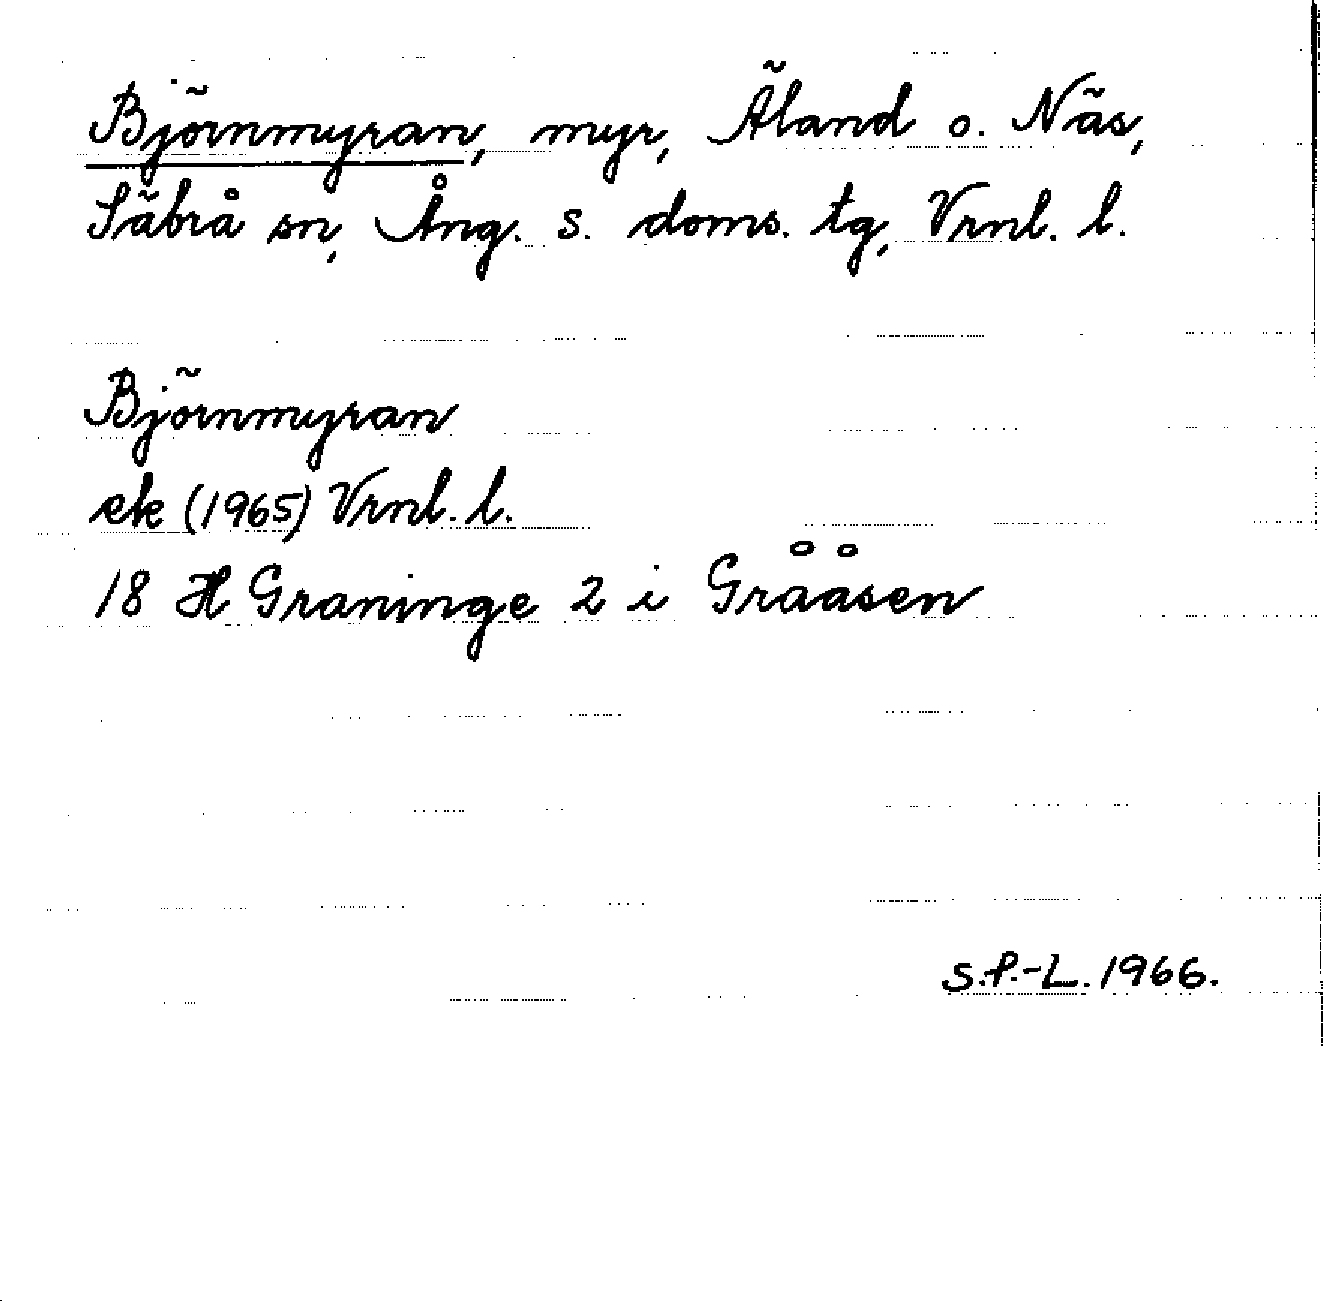 Björnmyran, myr, Äland o. Näs,
Säbrå sn, Ång. s. doms. tg, Vrnl. l.
Björnmyran
ek (1965) Vrnl. l.
18 H Graninge 2 i Grååsen
S.P.-L. 1966.